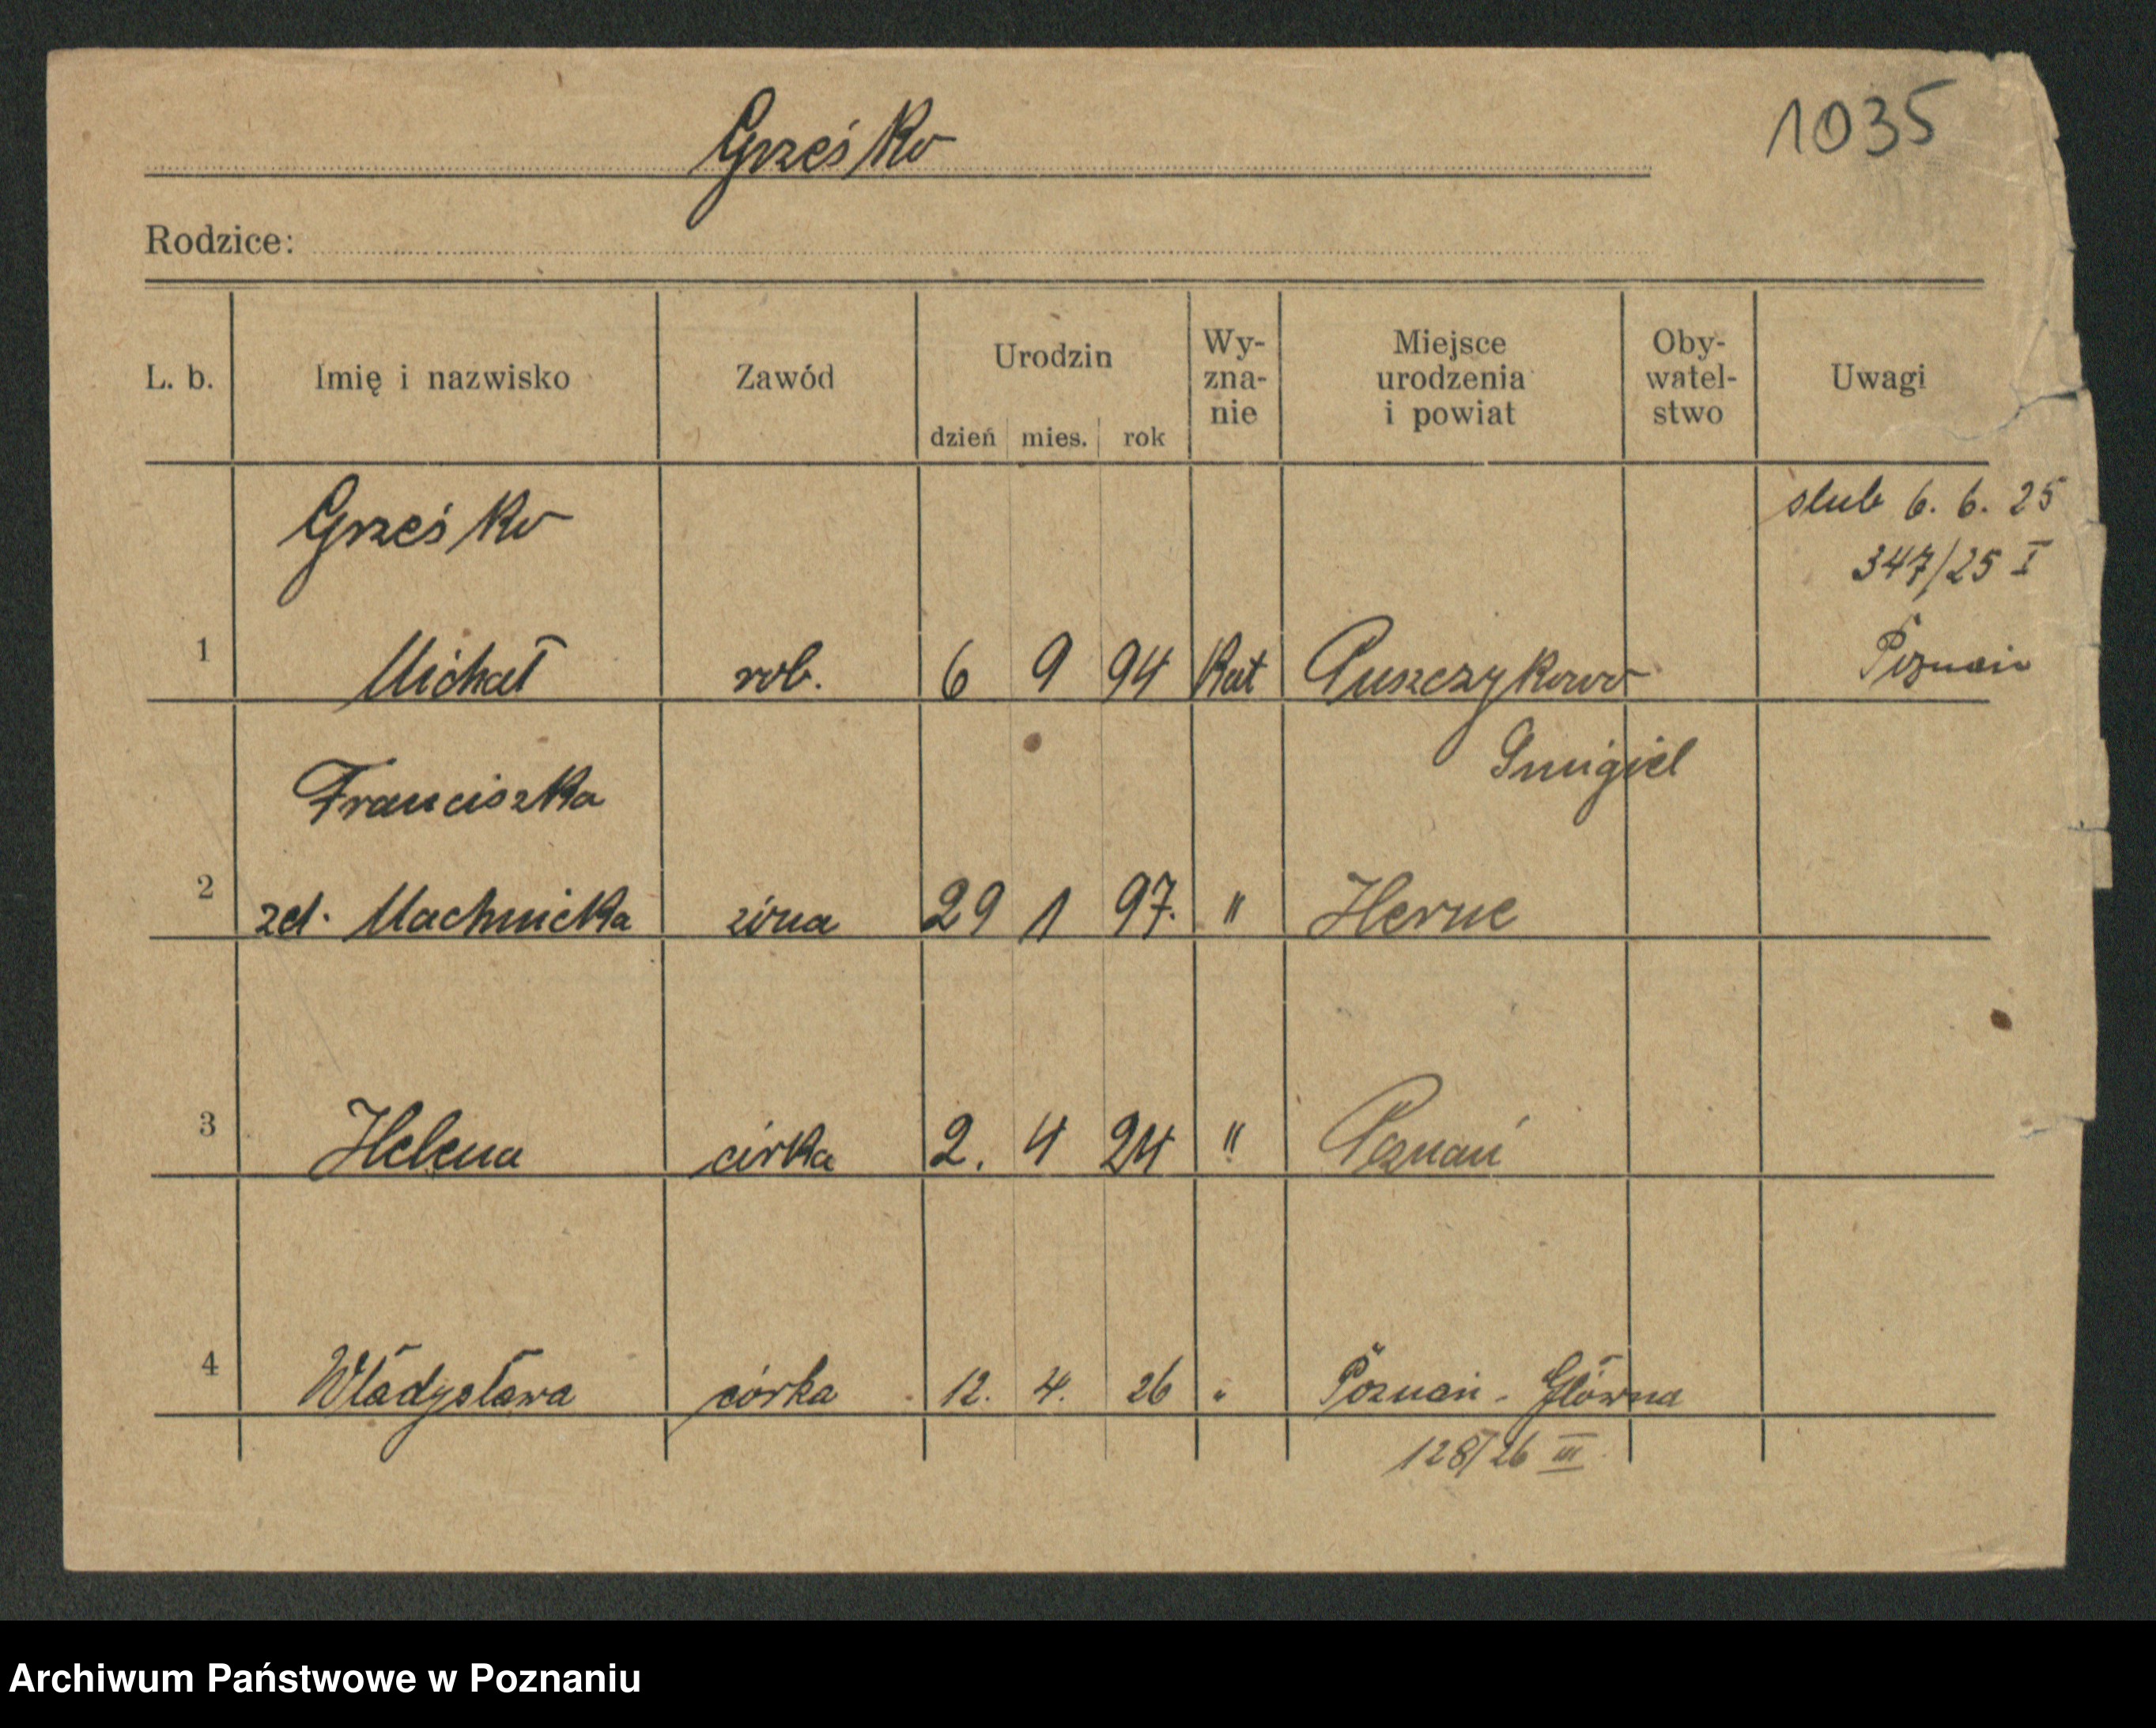 1035
Grześko
Rodzice:
L. b. Imię i nazwisko Zawód Urodzin dzień mies. rok Wy-zna-nie Miejsce urodzenia i powiat Oby-watel-stwo Uwagi
Grześko slub 6. 6. 25
347/25 I
1 Michał rob. 6 9 94 Kat Puszczykowo Poznań
Franciszka Śmigiel
2 zd. Machnicka żona 29 1 97. " Herne
3 Helena córka 2. 4 24 " Poznań
4 Władysława córka 12. 4. 26 " Poznań - Główna
128/26 III
Archiwum Państwowe w Poznaniu